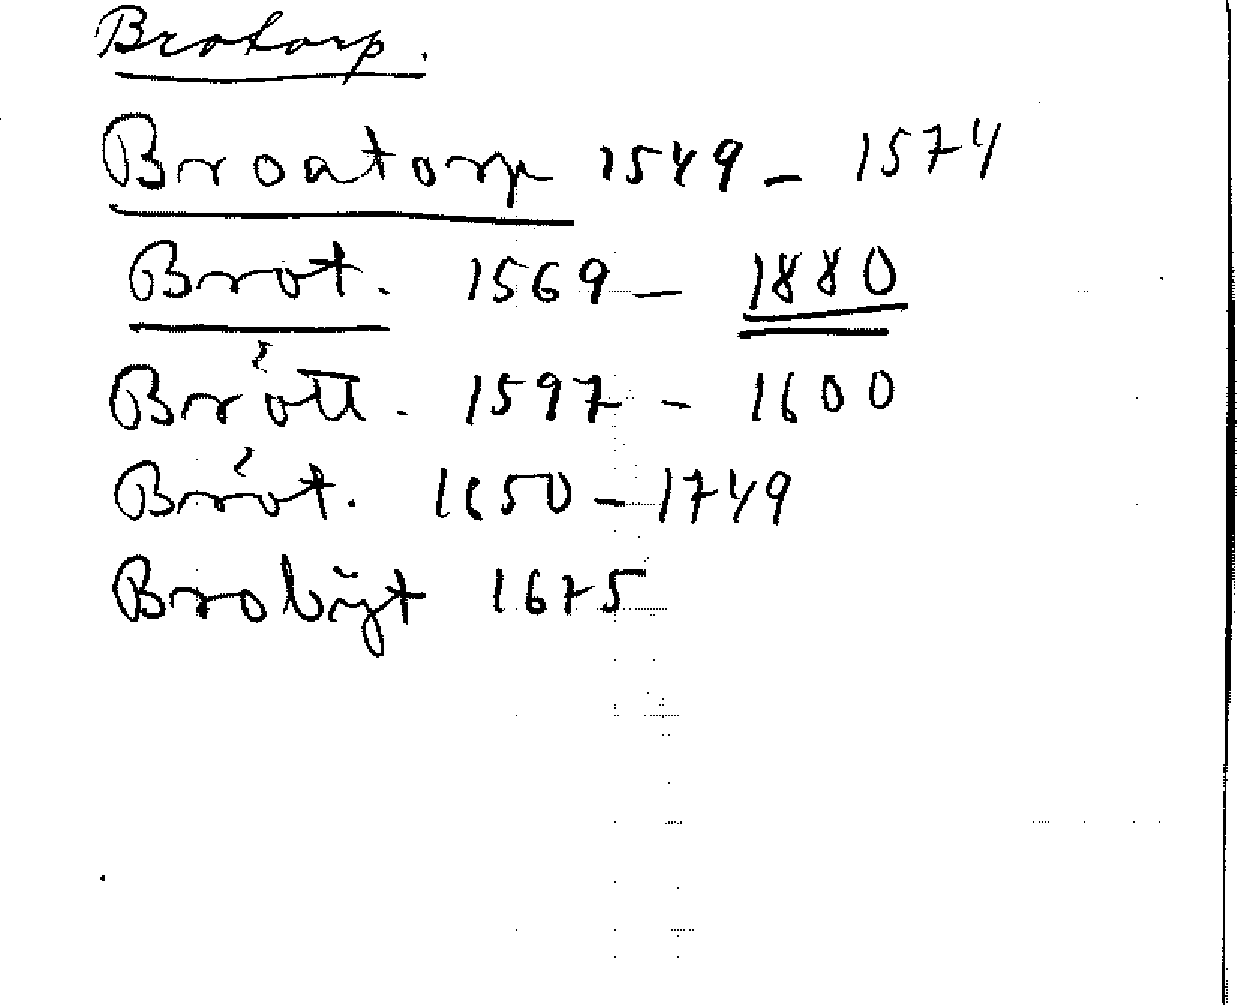 Brotorp.
Broatorp 1549 - 1574
Brot. 1569 - 1880
Brått. 1597 - 1600
Bråt. 1650 - 1749
1675